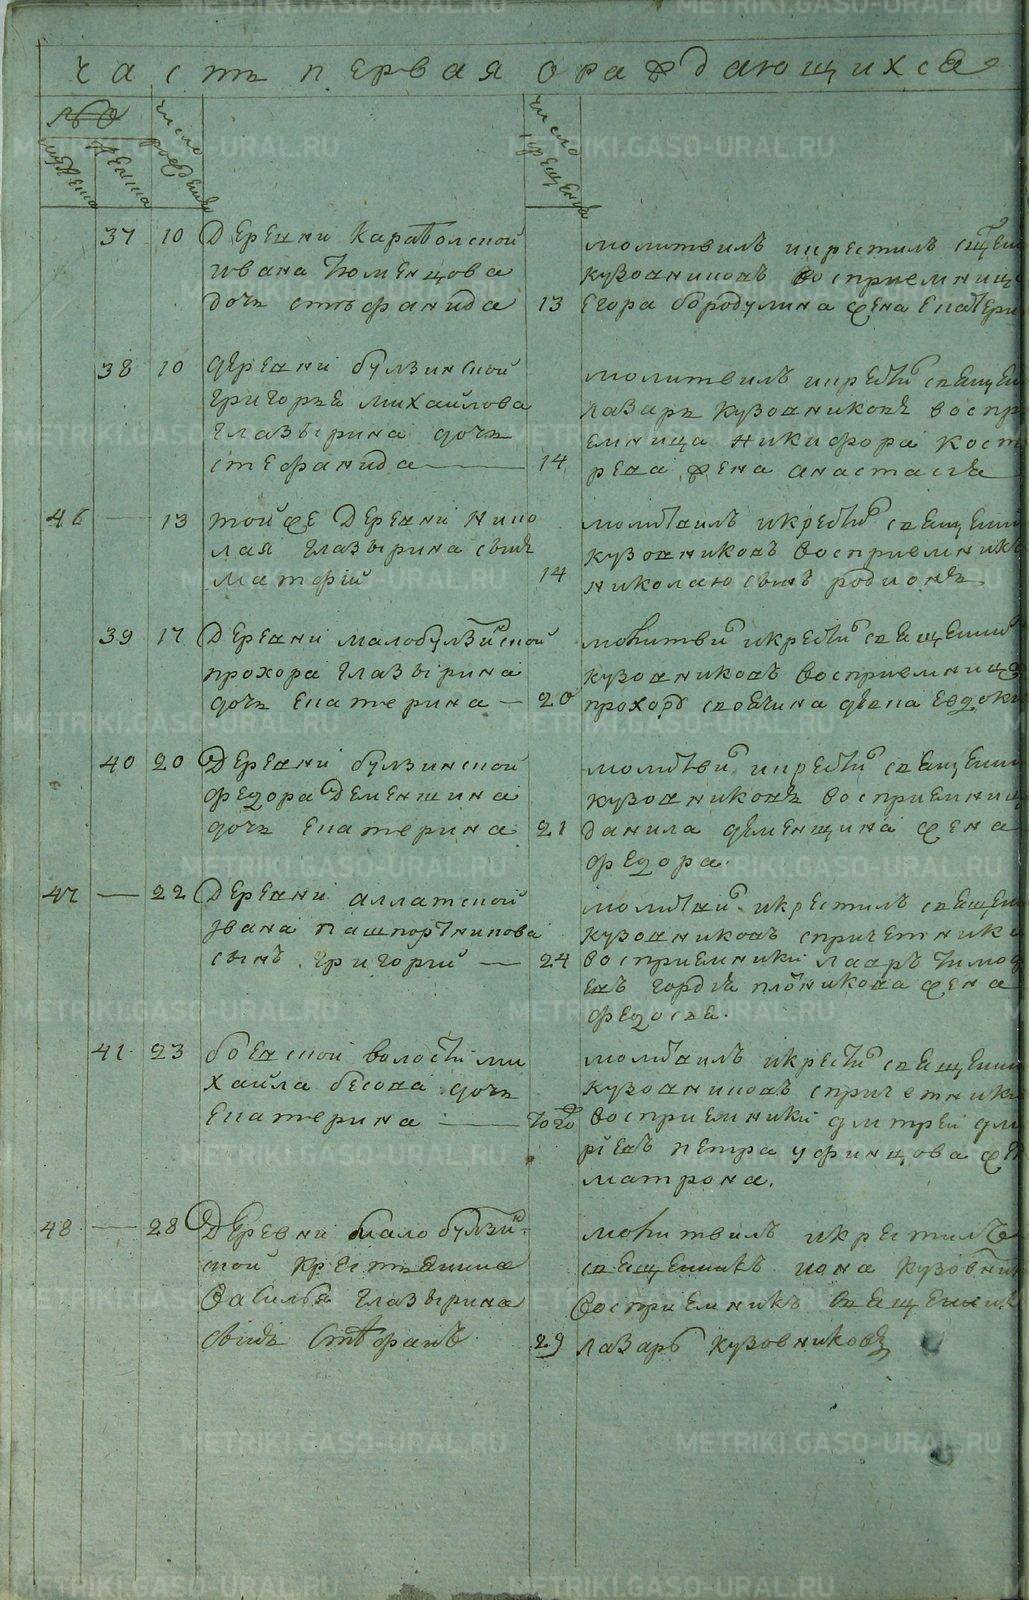 часть первая о раждающихся
№
мужеска
женска
число рожденія
число крещенія
37 10 Деревни Караболской
Ивана Тюменцова
дочь стефанида 13
молитвилъ икрестилъ
кузовниковъ восприемница
Егора бородулина жена Екатери
38 10 деревни булзинской
григорья михайлова
глазырина дочь
стефанида 14
молитвилъ икрести свящ
лазарь кузовниковъ воспр
емница никифора кост
рева жена анастасия
46 13 тойже Деревни Нико
лая глазырина сынъ
матфій 14
молитвилъ икрести священ
кузовниковъ восприемникъ
николаю сынъ родионъ
39 17 Деревни малобулзинской
прохора глазырина
дочь Екатерина 20
молитви икрести священ
кузовниковъ восприемница
прохора девка евдоки
40 20 Деревни булзинской
федора Деменшина
дочь Екатерина 21
молитви икрести священ
кузовниковъ восприемни
данила деменщина жена
федора
47 22 Деревни аллатской
Ивана пашпортникова
сынъ григорій 24
молитви икрестилъ священ
кузовниковъ спричетники
восприемники лавръ тимоф
евъ гордея плотникова жена
федосья.
41 23 боевской волости ми
хайла бесова дочь
Екатерина того
молитвилъ икрести священ
кузовниковъ спричетники
восприемники дмитрей дми
ріевъ петра уфинцова же
матрона.
48 28 Деревни мало булзин
кой крестьянина
Василья глазырина
сынъ Стефанъ 29
молитвилъ икрестилъ
священикъ иона кузовник
восприемникъ священик
лазарь кузовниковъ
METRIKI.GASO-URAL.RU